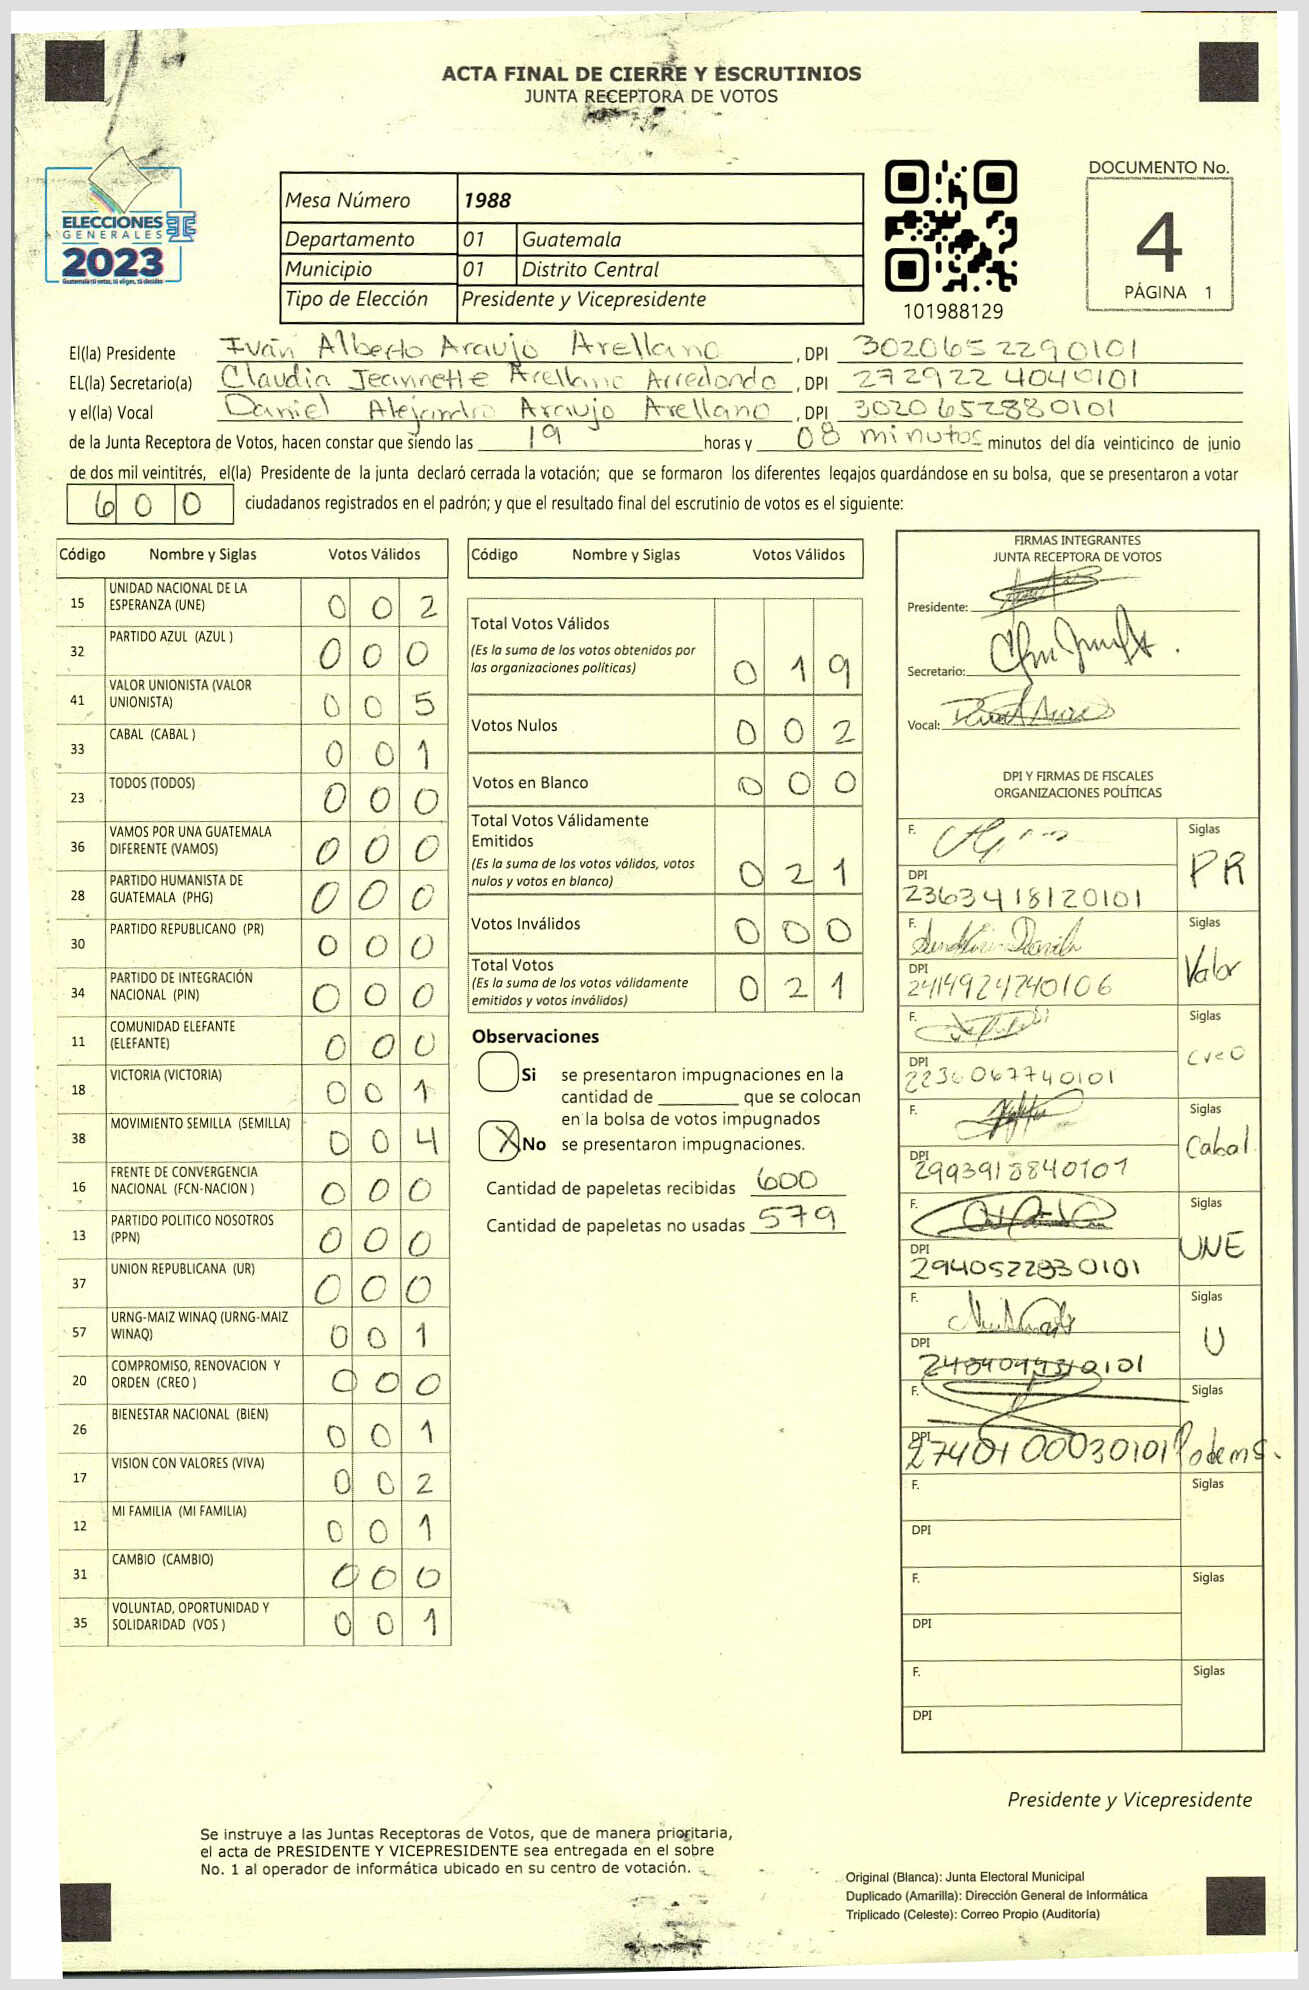 ACTA FINAL DE CIERRE Y ESCRUTINIOS
JUNTA RECEPTORA DE VOTOS
ELECCIONES
GENERALES
2023
Guatemala tú votas, tú eliges, tú decides
Mesa Número 1988
Departamento 01 Guatemala
Municipio 01 Distrito Central
Tipo de Elección Presidente y Vicepresidente
101988129
DOCUMENTO No.
4
PÁGINA 1
El(la) Presidente Iván Alberto Araujo Arellano , DPI 3020652290101
EL(la) Secretario(a) Claudia Jeannette Arellano Arredondo , DPI 2729224040101
y el(la) Vocal Daniel Alejandro Araujo Arellano , DPI 3020652880101
de la Junta Receptora de Votos, hacen constar que siendo las 19 horas y 08 minutos minutos del día veinticinco de junio
de dos mil veintitrés, el(la) Presidente de la junta declaró cerrada la votación; que se formaron los diferentes legajos quardándose en su bolsa, que se presentaron a votar
600 ciudadanos registrados en el padrón; y que el resultado final del escrutinio de votos es el siguiente:
Código Nombre y Siglas Votos Válidos
15 UNIDAD NACIONAL DE LA ESPERANZA (UNE) 0 0 2
32 PARTIDO AZUL (AZUL ) 0 0 0
41 VALOR UNIONISTA (VALOR UNIONISTA) 0 0 5
33 CABAL (CABAL ) 0 0 1
23 TODOS (TODOS) 0 0 0
36 VAMOS POR UNA GUATEMALA DIFERENTE (VAMOS) 0 0 0
28 PARTIDO HUMANISTA DE GUATEMALA (PHG) 0 0 0
30 PARTIDO REPUBLICANO (PR) 0 0 0
34 PARTIDO DE INTEGRACIÓN NACIONAL (PIN) 0 0 0
11 COMUNIDAD ELEFANTE (ELEFANTE) 0 0 0
18 VICTORIA (VICTORIA) 0 0 1
38 MOVIMIENTO SEMILLA (SEMILLA) 0 0 4
16 FRENTE DE CONVERGENCIA NACIONAL (FCN-NACION ) 0 0 0
13 PARTIDO POLITICO NOSOTROS (PPN) 0 0 0
37 UNION REPUBLICANA (UR) 0 0 0
57 URNG-MAIZ WINAQ (URNG-MAIZ WINAQ) 0 0 1
20 COMPROMISO, RENOVACION Y ORDEN (CREO ) 0 0 0
26 BIENESTAR NACIONAL (BIEN) 0 0 1
17 VISION CON VALORES (VIVA) 0 0 2
12 MI FAMILIA (MI FAMILIA) 0 0 1
31 CAMBIO (CAMBIO) 0 0 0
35 VOLUNTAD, OPORTUNIDAD Y SOLIDARIDAD (VOS ) 0 0 1
Código Nombre y Siglas Votos Válidos
Total Votos Válidos
(Es la suma de los votos obtenidos por
las organizaciones políticas) 0 1 9
Votos Nulos 0 0 2
Votos en Blanco 0 0 0
Total Votos Válidamente
Emitidos
(Es la suma de los votos válidos, votos
nulos y votos en blanco) 0 2 1
Votos Inválidos 0 0 0
Total Votos
(Es la suma de los votos válidamente
emitidos y votos inválidos) 0 2 1
Observaciones
Si se presentaron impugnaciones en la
cantidad de ________ que se colocan
en la bolsa de votos impugnados
X No se presentaron impugnaciones.
Cantidad de papeletas recibidas 600
Cantidad de papeletas no usadas 579
FIRMAS INTEGRANTES
JUNTA RECEPTORA DE VOTOS
Presidente:
Secretario:
Vocal:
DPI Y FIRMAS DE FISCALES
ORGANIZACIONES POLÍTICAS
F. Siglas
PR
DPI
2363418120101
F. Siglas
Valor
DPI
2414924740106
F. Siglas
Creo
DPI
2236067740101
F. Siglas
Cabal
DPI
2993918840101
F. Siglas
UNE
DPI
2940522830101
F. Siglas
U
DPI
F. Siglas
DPI
2740100030101 Podemos.
F. Siglas
DPI
F. Siglas
DPI
F. Siglas
DPI
Presidente y Vicepresidente
Se instruye a las Juntas Receptoras de Votos, que de manera prioritaria,
el acta de PRESIDENTE Y VICEPRESIDENTE sea entregada en el sobre
No. 1 al operador de informática ubicado en su centro de votación.
Original (Blanca): Junta Electoral Municipal
Duplicado (Amarilla): Dirección General de Informática
Triplicado (Celeste): Correo Propio (Auditoría)